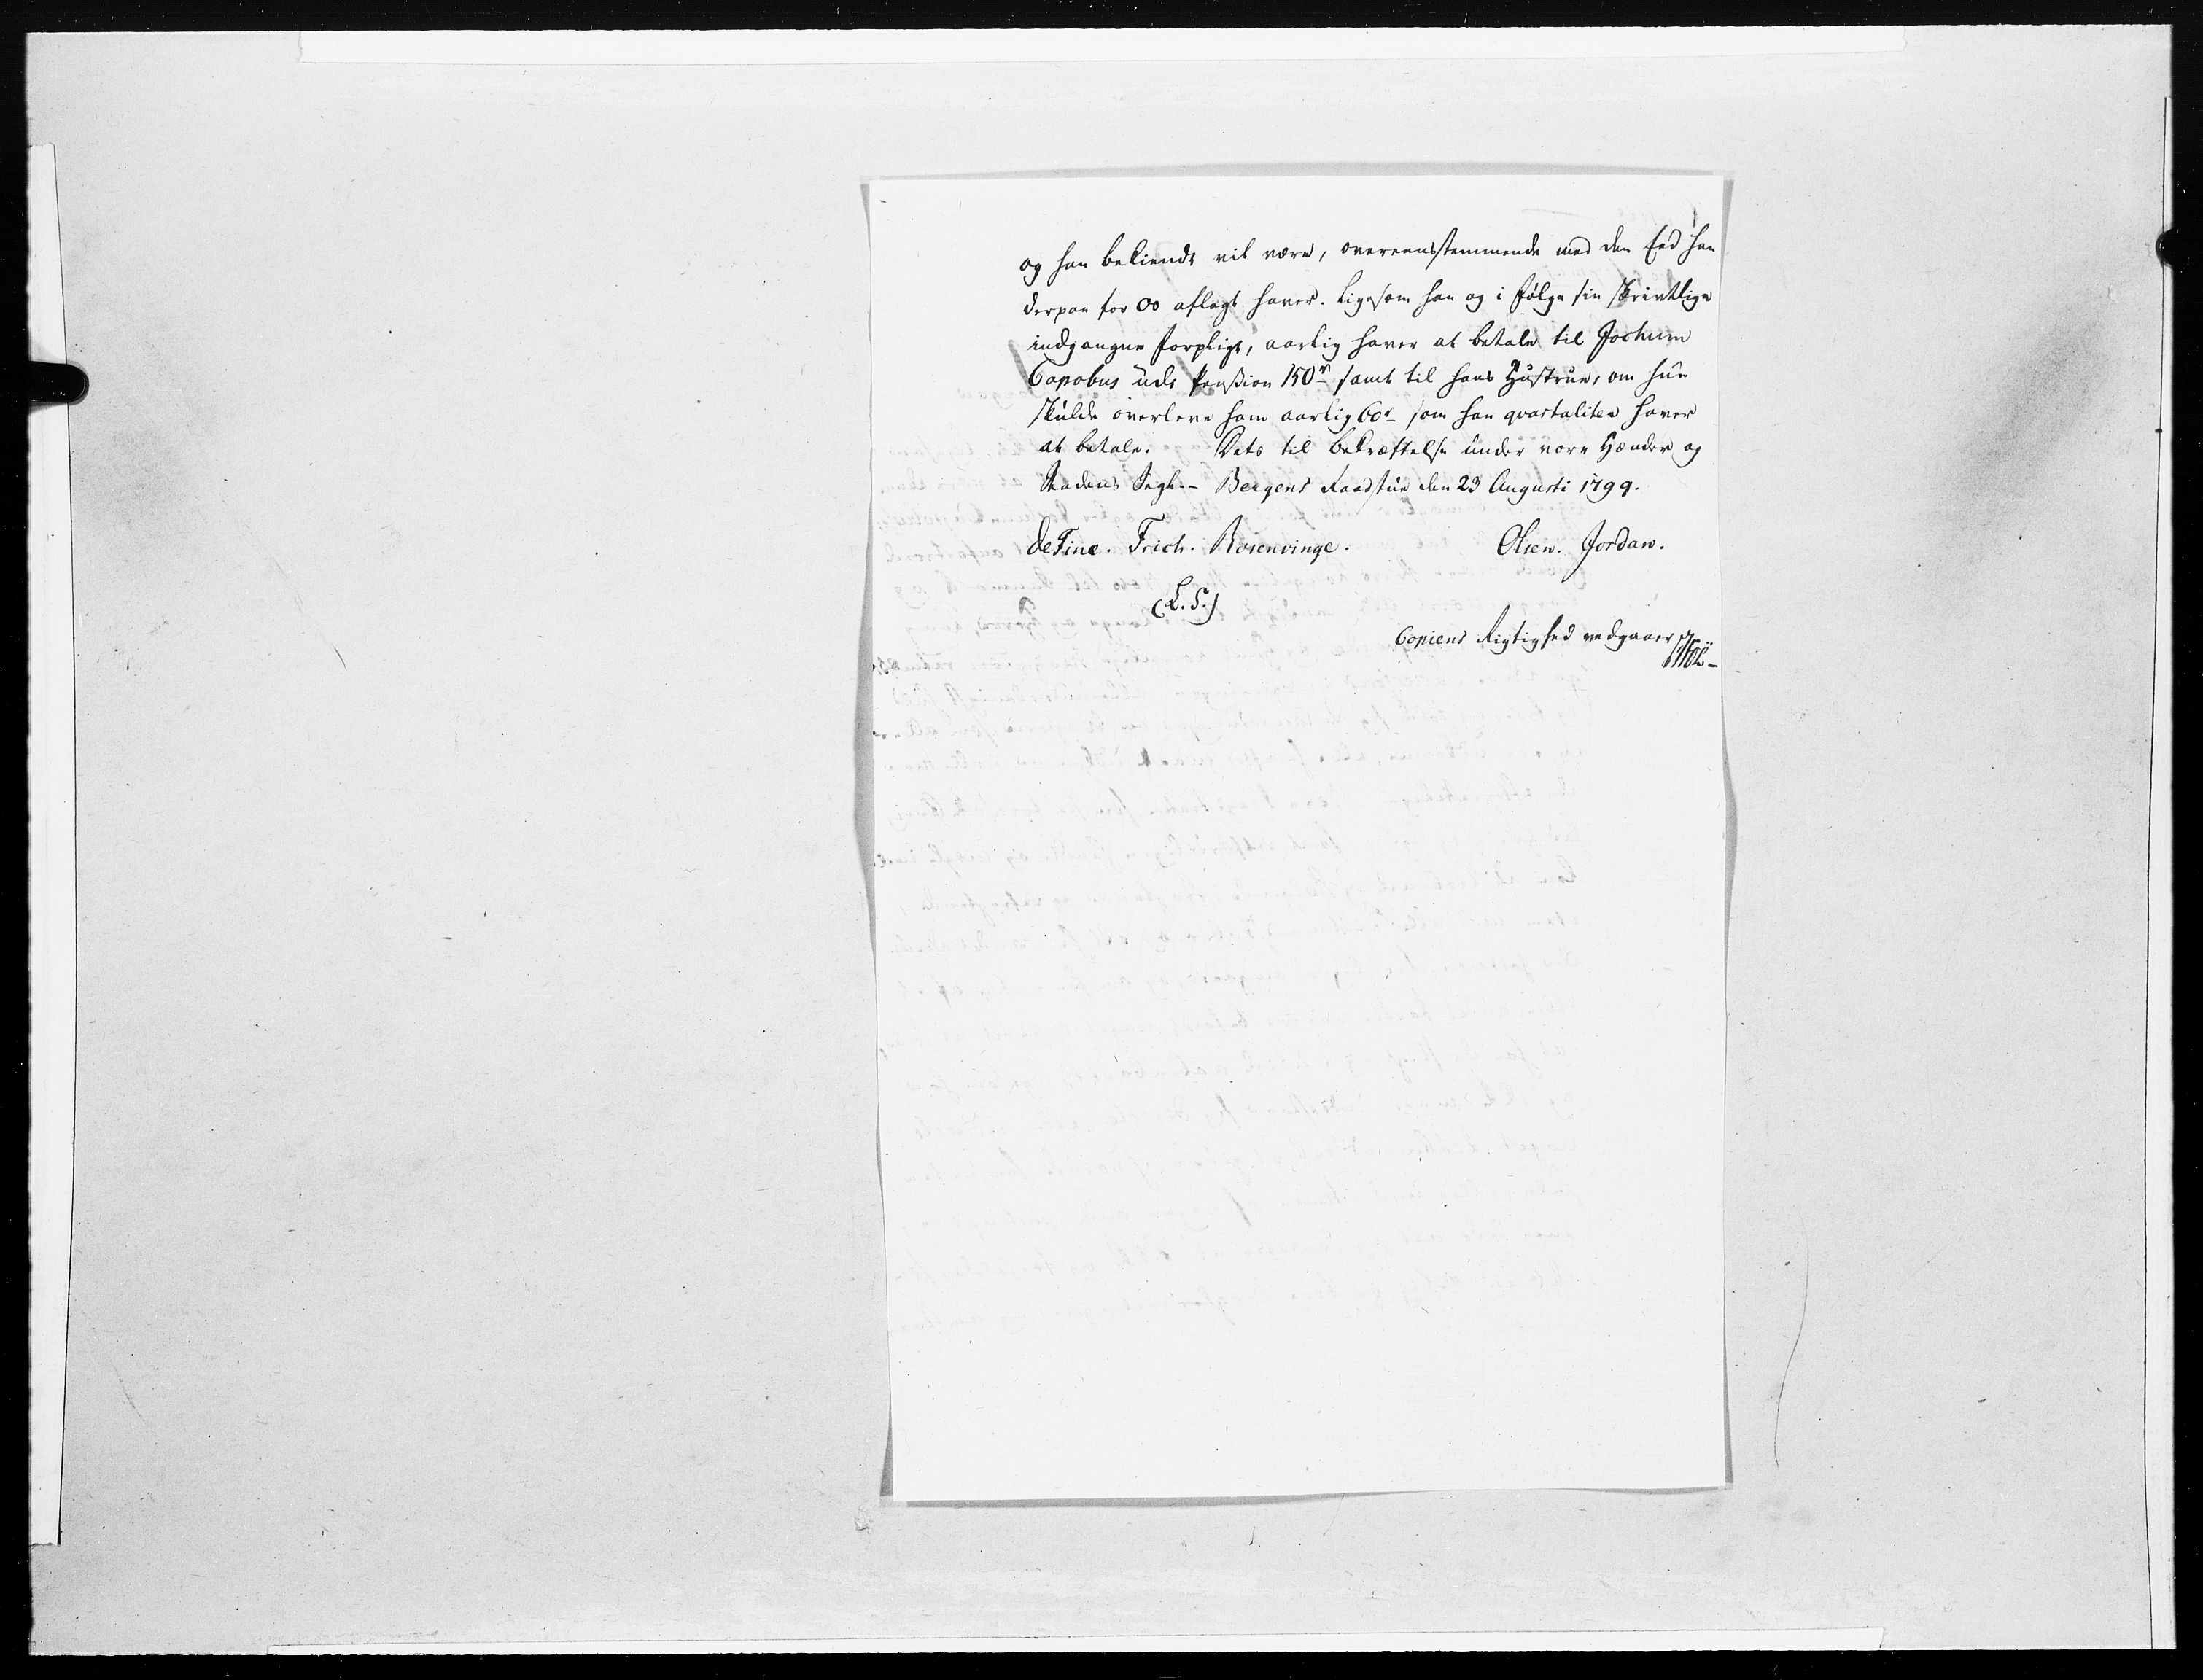 og han bekiendt vil være, overeensstemmende med den Eed han
derpaa for os aflagt haver. Ligesom han og i følge sin skrivtlige
indgangne forpligt, aarlig haver at betale til Jochum
Capobus udi Pension 150 rd samt til hans Hustrue, om hun
skulde overleve ham aarlig 60 r som han qvartaliter haver
at betale. Dets til bekræftelse under vore Hænder og
Stadens Segl. - Bergens Raadstue den 23 Augusti 1799.
deFine. Frich. Rosenvinge. Olsen. Jordan.
(L. S.)
Copiens Rigtighed vedgaaer